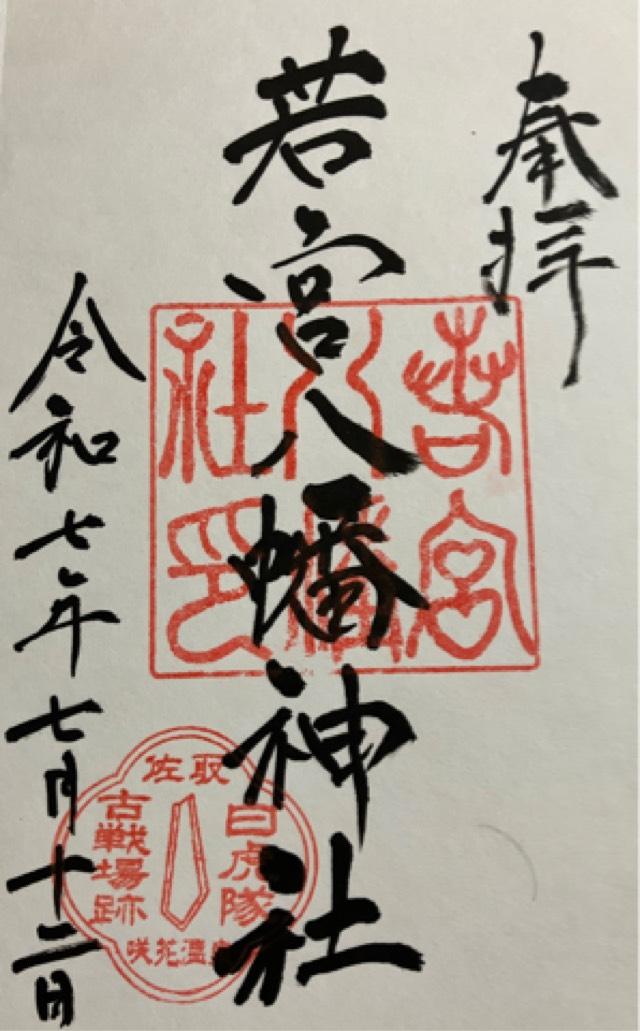 奉拝
若宮八幡神社
令和七年七月十二日
若宮
八幡
社印
佐取
白虎隊
古戦場跡
咲花温泉